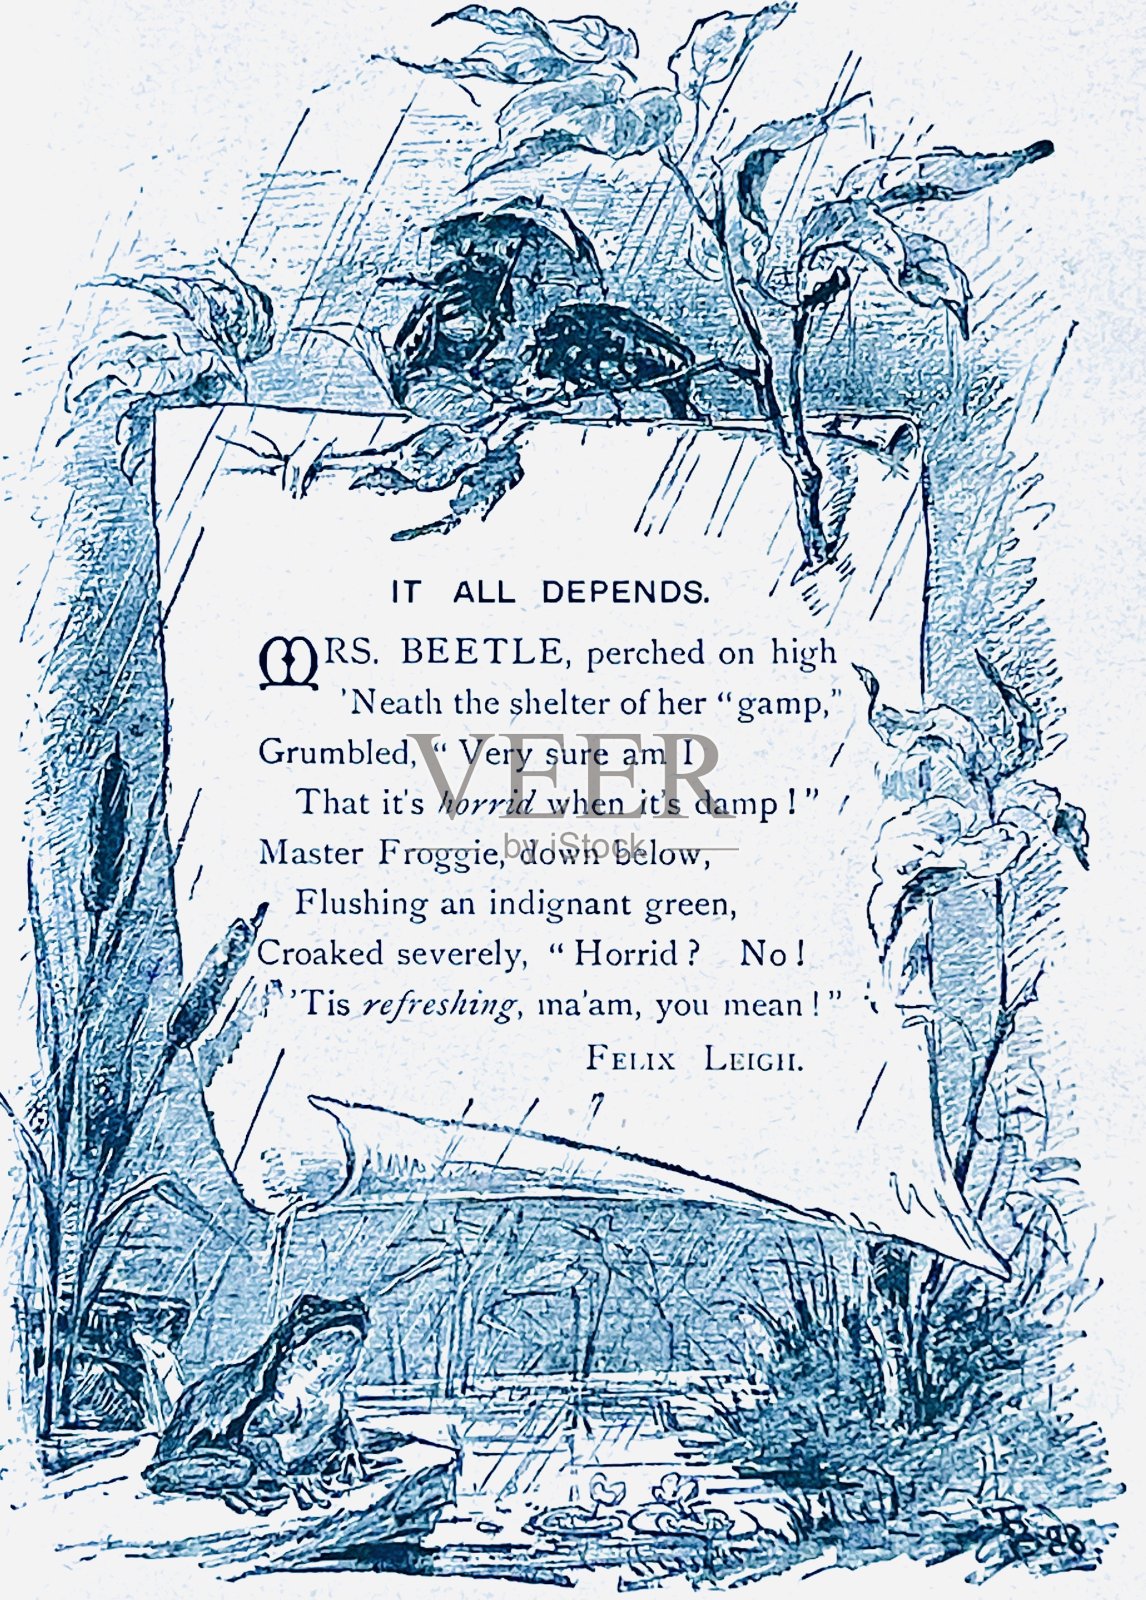 IT ALL DEPENDS.
MRS. BEETLE, perched on high
'Neath the shelter of her "gamp,"
Grumbled, "Very sure am I
That it's horrid when it's damp!"
Master Froggie, down below,
Flushing an indignant green,
Croaked severely, "Horrid? No!
'Tis refreshing, ma'am, you mean!"
FELIX LEIGH.
VEER
by iStock